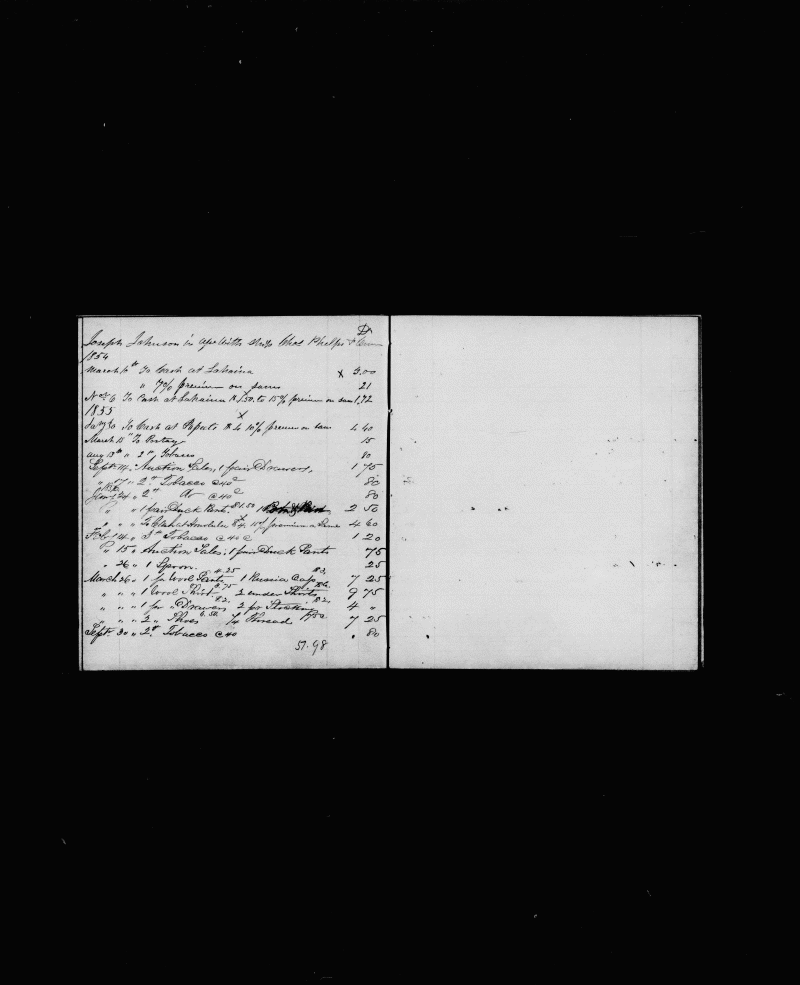 Dr
Joseph Johnson in a/c with Ship Chas Phelps &
1854
March To Cash at Lahaina x 3.00
" 7% premium on same 21
Nov 6 To Cash at Lahaina 1.50 to 15% premium on same 1,72
1855 x
Jany 20 To Cash at 4 10% premium on same 4 40
March 15 To 15
Aug 13th " 2 " Tobacco 80
Sept 14 " Auction Sales, 1 pair Drawers, 1 75
" 17 " 2 " Tobacco @ 40c 80
1856
Jany 24 " 2 " Do @ 40c 80
" " 1 pair Duck Pants $1.50 1 2 50
" " " To Cash at Honolulu $4. 15% premium on Same 4 60
Feb 14 " 3 " Tobacco @ 40 c 1 20
" 15 " Auction Sales, 1 pair Duck Pants 75
" 26 " 1 Spoon. 25
March 26 " 1 pr Wool Pants 4.25 1 Russia Cap $3, 7 25
" " " 1 Wool Shirt 2 under Shirts 9 75
" " " 1 pr Drawers $2, 2 pr Stockings $2, 4 "
" " " 2 " Shoes Thread 7 25
Sept 30 " 2 " Tobacco @ 40 80
51.98